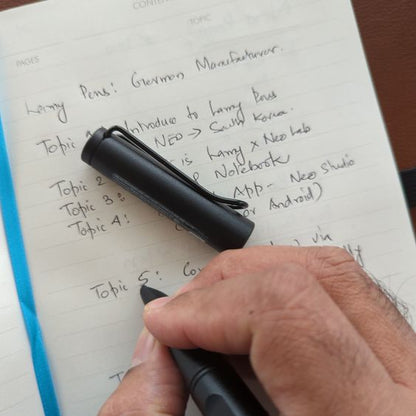 CONTEN
TOPIC
PAGES
Lamy Pens: German Manufacturer.
Topic Introduce to Lamy Pens
NEO → South Korea.
Topic 2 is Lamy X Neo Lab
Topic 3: Notebook
Topic 4: App - Neo Studio
or Android)
Topic 5: Co via